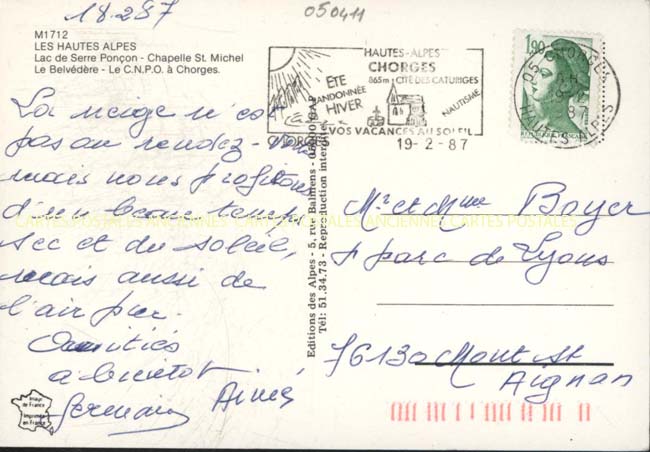 18.2 87
050411
M1712
LES HAUTES ALPES
Lac de Serre Ponçon - Chapelle St. Michel
Le Belvédère - Le C.N.P.O. à Chorges.
HAUTES-ALPES
CHORGES
865m CITÉ DES CATURIGES
ÉTÉ
RANDONNÉE
HIVER
NAUTISME
VOS VACANCES AU SOLEIL
CHORGES
19-2-87
1,90
La neige n'est
pas au rendez-vous
mais nous profitons
d'un beau temps
sec et du soleil,
mais aussi de
l'air pur.
Amitiés
a bientot
Aimé
Germain
Editions des Alpes - 5, rue Balmens -
Tél: 51.34.73 - Reproduction interdite
Mr et Mme Boyer
parc de Lyons
76130 Mont St
Aignan
CARTES POSTALES ANCIENNES CARTES POSTALES ANCIENNES CARTES POSTALES
Image de France
Imprimée en France